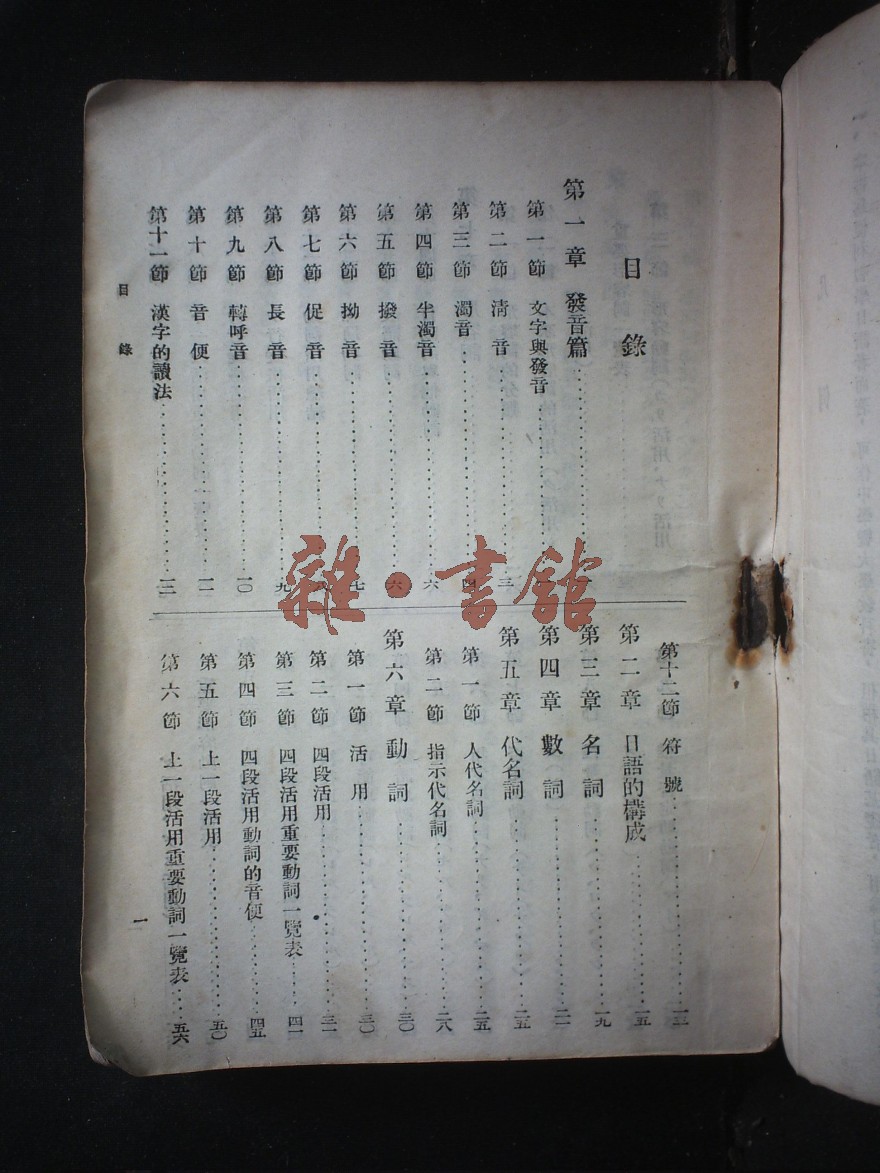 目錄
第一章 發音篇
第一節 文字與發音
第二節 淸音 三
第三節 濁音 四
第四節 半濁音 六
第五節 撥音 六
第六節 拗音 七
第七節 促音
第八節 長音 九
第九節 轉呼音 一〇
第十節 音便 一一
第十一節 漢字的讀法 一二
目錄
第十二節 符號 一三
第二章 日語的構成 一五
第三章 名詞 一九
第四章 數詞 二一
第五章 代名詞 二五
第一節 人代名詞 二五
第二節 指示代名詞 二八
第六章 動詞 三〇
第一節 活用 三〇
第二節 四段活用 三一
第三節 四段活用重要動詞一覽表 四一
第四節 四段活用動詞的音便 四五
第五節 上一段活用 五〇
第六節 上一段活用重要動詞一覽表 五六
一
雜·書館